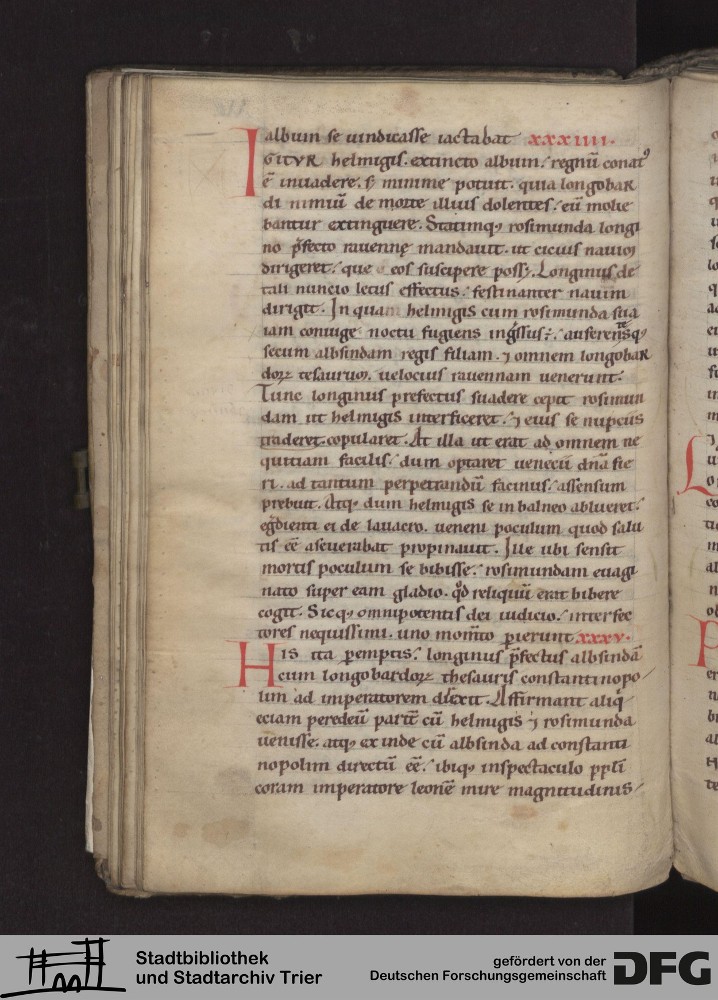 albuin se uindicasse iactabat xxxiiii.
IGITVR helmigis. extincto albuin. regnū conatꝰ
ē inuadere. sꝫ minime potuit. quia longobar
di nimiū de morte illius dolentes. eū molie
bantur extinguere. Statimqꝫ rosimunda longi
no p̄fecto rauennę mandauit. ut cicius nauim
dirigeret. que eos suscipere possꝫ. Longinus de
tali nuncio letus effectus. festinanter nauim
dirigit. In quam helmigis cum rosimunda sua
iam coniuge noctu fugiens ingssus. auferensqꝫ
secum albsindam regis filiam. ⁊ omnem longobar
doꝝ tesaurum. uelocius rauennam uenerunt.
Tunc longinus prefectus suadere cepit rosimun
dam ut helmigis interficeret. ⁊ eius se nupciis
traderet copularet. At illa ut erat ad omnem ne
quitiam facilis. dum optaret uenecū dn̄a fie
ri. ad tantum perpetrandū facinus. assensum
prebuit. Atqꝫ dum helmigis se in balneo ablueret.
egdienti ei de lauacro. ueneni poculum quod salu
tis eē aseuerabat propinauit. Ille ubi sensit
mortis poculum se bibisse. rosimundam euagi
nato super eam gladio. qd̓ reliquum erat bibere
cogit. Sicqꝫ omnipotentis dei iudicio. interfec
tores nequissimi. uno mom̄to perierunt xxxv.
HIS ita peremptis. longinus p̄fectus albsindā
cum longobardoꝝ thesauris constantinopo
lim ad imperatorem direxit. Affirmant aliqi
eciam peredeū partē cū helmigis ⁊ rosimunda
uenisse. atqꝫ exinde cū albsinda ad constanti
nopolim directū eē. ibiqꝫ inspectaculo ppl̄i
coram imperatore leonē mire magnitudinis
Stadtbibliothek
und Stadtarchiv Trier
gefördert von der
Deutschen Forschungsgemeinschaft
DFG